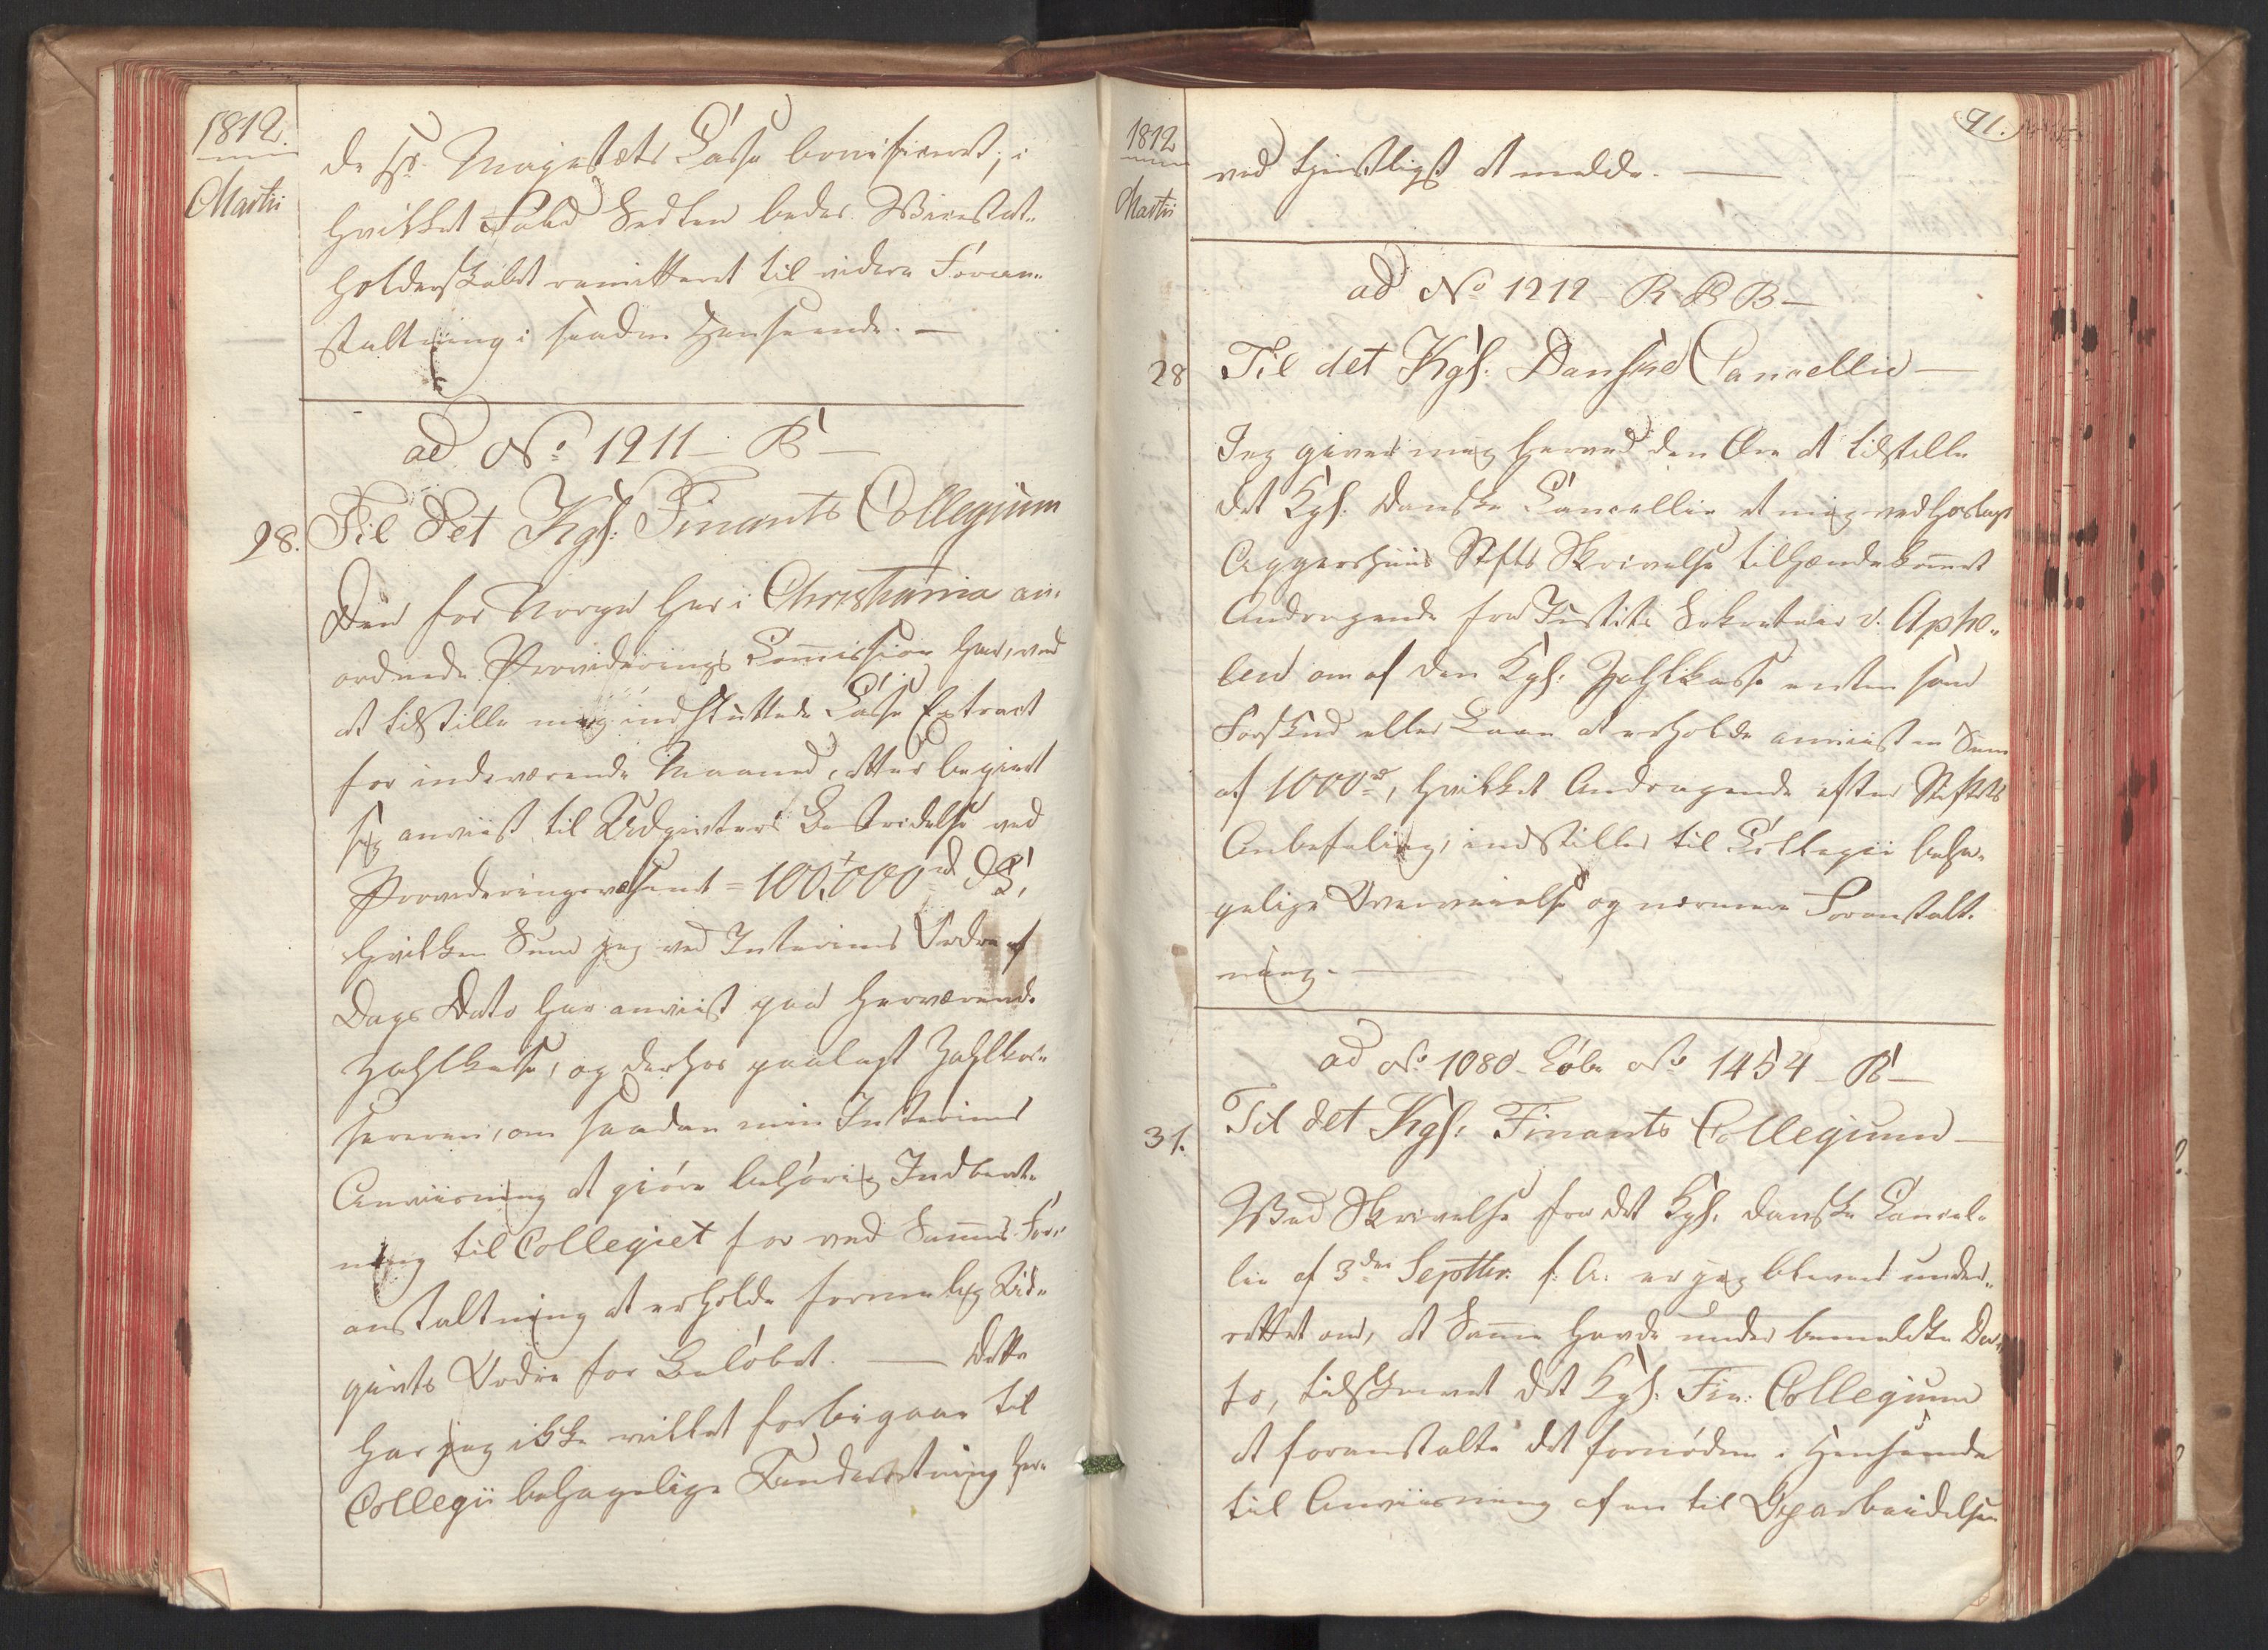 1812.
Martii
de Hs. Majestets Casse bonificeret, i
hvilket Fald Sedlen bedes Vicestat-
holderskabet remitteret til videre Foran-
staltning i saadan Henseende. —
ad No. 1211 - B —
28. Til det Kgl: Finants Collegium
Den for Norge her i Christiania an-
ordnede Provideerings Commission har, ved
at tilstille mig indsluttede Casse Extract
for indeværende Maaned, atter begiert
sig anviist til Udgivters Bestridelse ved
Provideringsvæsenet = 100,000 rd DC,
hvilken Sum jeg ved Interims Ordre af
Dags Dato har anviist paa herværende
Zahlkasse, og derhos paalagt Zahlkas-
sereren, om saadan min Interims
Anviisning at giøre behørig Indberet-
ning til Collegiet for ved Sammes For-
anstaltning at erholde formelig Ud-
givts Ordre for Beløbet. — Dette
har jeg ikke villet forbigaae til
Collegii behagelige Underretning her-
1812
Martii
91.
ved tienstligst at melde. —
ad No. 1212 - R & B —
28 Til det Kgl: Danske Cancellie —
Jeg giver mig herved den Ære at tilstille
det Kgl. Danske Cancellie et mig ved hoslagt
Aggershuus Stifts Skrivelse tilhændekommet
Andragende fra Justits Sekretair v. Aphe-
len om af den Kgl: Zahlkasse enten som
Forskud eller Laan at erholde anviist en Sum
af 1000 rd, hvilket Andragende efter Stiftets
Anbefaling, indstilles til Collegii beha-
gelige Overveielse og nærmere Foranstalt-
ning. —
ad No. 1080 - Løbe No. 1454 - B —
31. Til det Kgl: Finants Collegium —
Ved Skrivelse fra det Kgl. danske Cancel-
lie af 3die Septbr. f: A: er jeg bleven under-
rettet om, at Samme havde under bemeldte Da-
to, tilskrevet det Kgl: Fin: Collegium
at foranstalte det fornødne i Henseende
til Anviisning af en til Oparbeidelsen